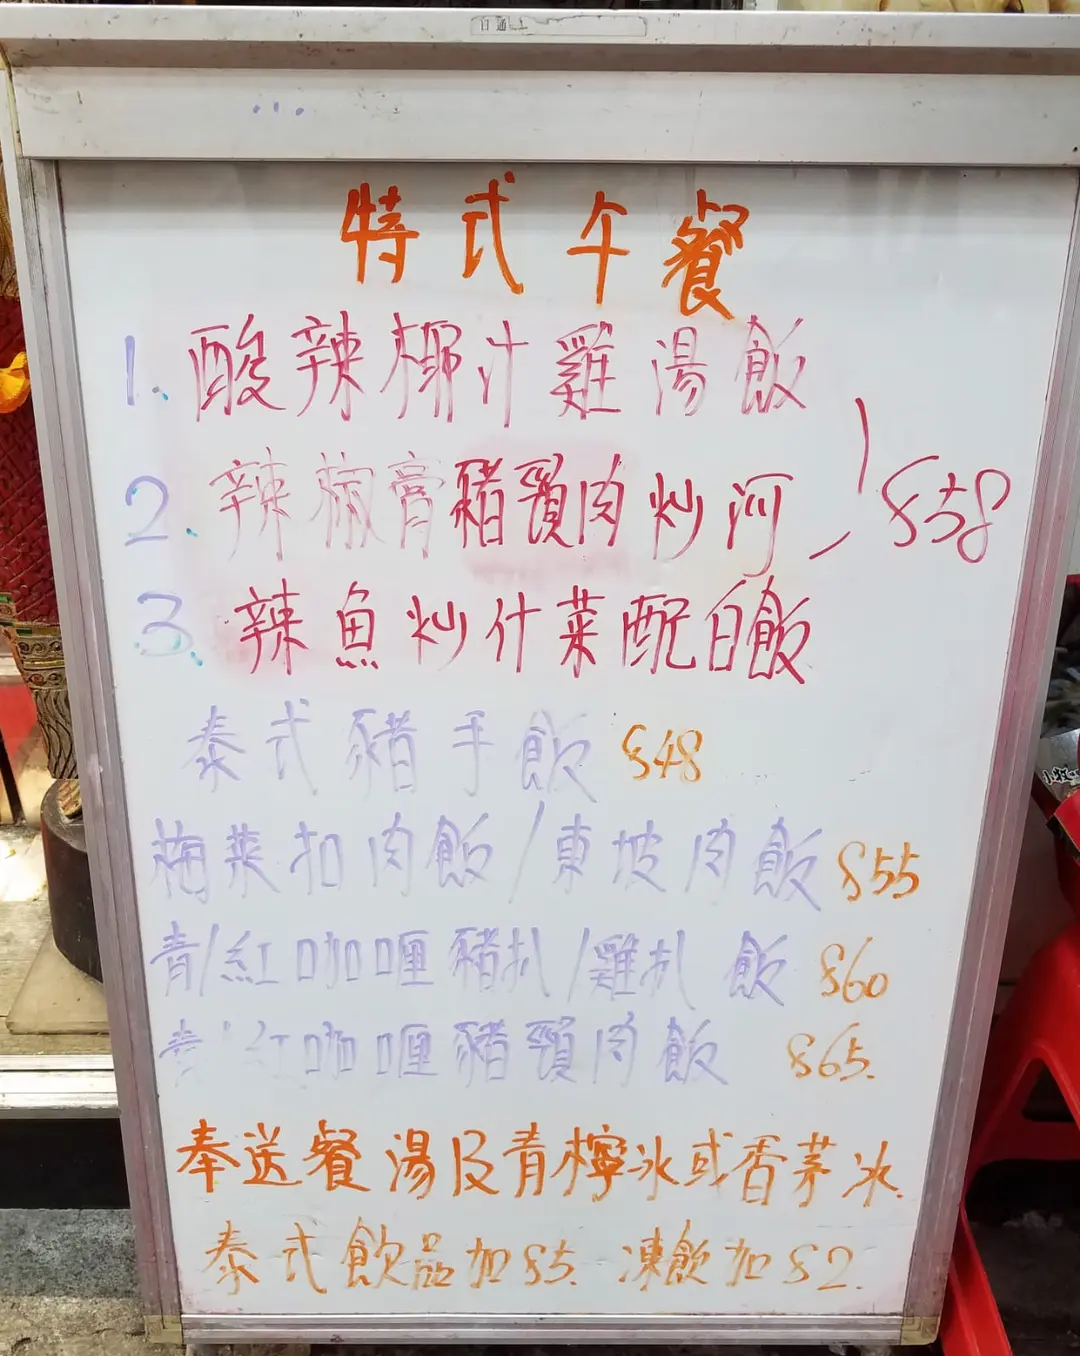 特式午餐
1. 酸辣椰汁雞湯飯
2. 辣椒膏豬頸肉炒河 $58
3. 辣魚炒什菜配白飯
泰式豬手飯 $48
梅菜扣肉飯/東坡肉飯 $55
青/紅咖喱豬扒/雞扒飯 $60
青/紅咖喱豬頸肉飯 $65.
奉送餐湯及青檸冰或香茅冰.
泰式飲品加$5. 凍飲加$2.